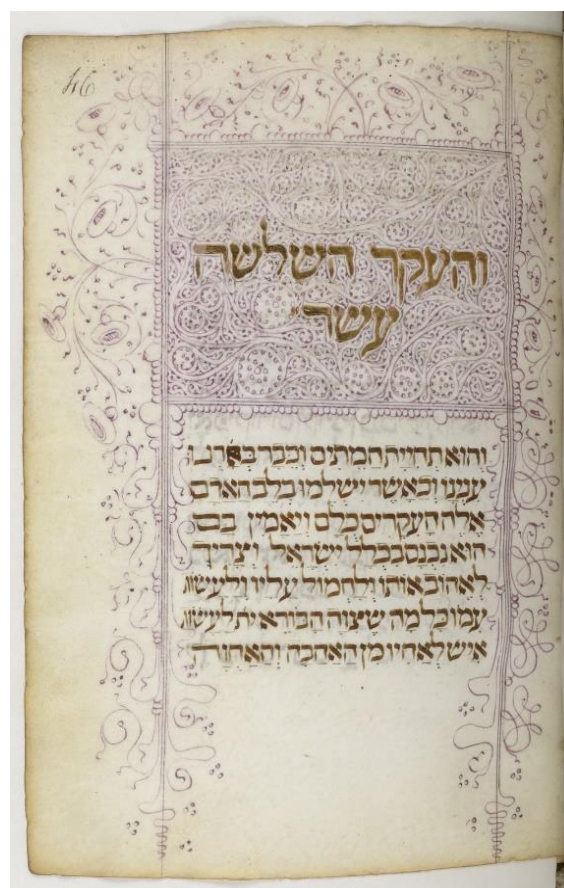 46
והעקר השלשה
עשר
והוא תחיית המתים וכבר בארנו
ענינו וכאשר ישלמו בלב האדם
אלה העקרים כלם ויאמין בם
הוא נכנס בכלל ישראל וצריך
לאהוב אותו ולחמול עליו ולעשות
עמו כל מה שצוה הבורא ית לעשות
איש לאחיו מן האהבה והאחוה